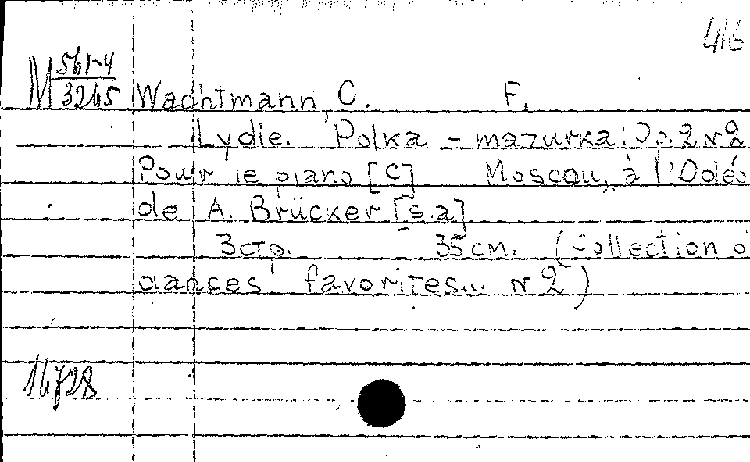 416
M 561-4
3265 Wachtmann, C. F.
Lydie. Polka - mazurka. Op. 2 N 2
Pour le piano [C] Moscou, à l'Odé
de A. Brücker [s.a]
3 стр. 35 см. (Collection d
danses favorites... N 2)
16728